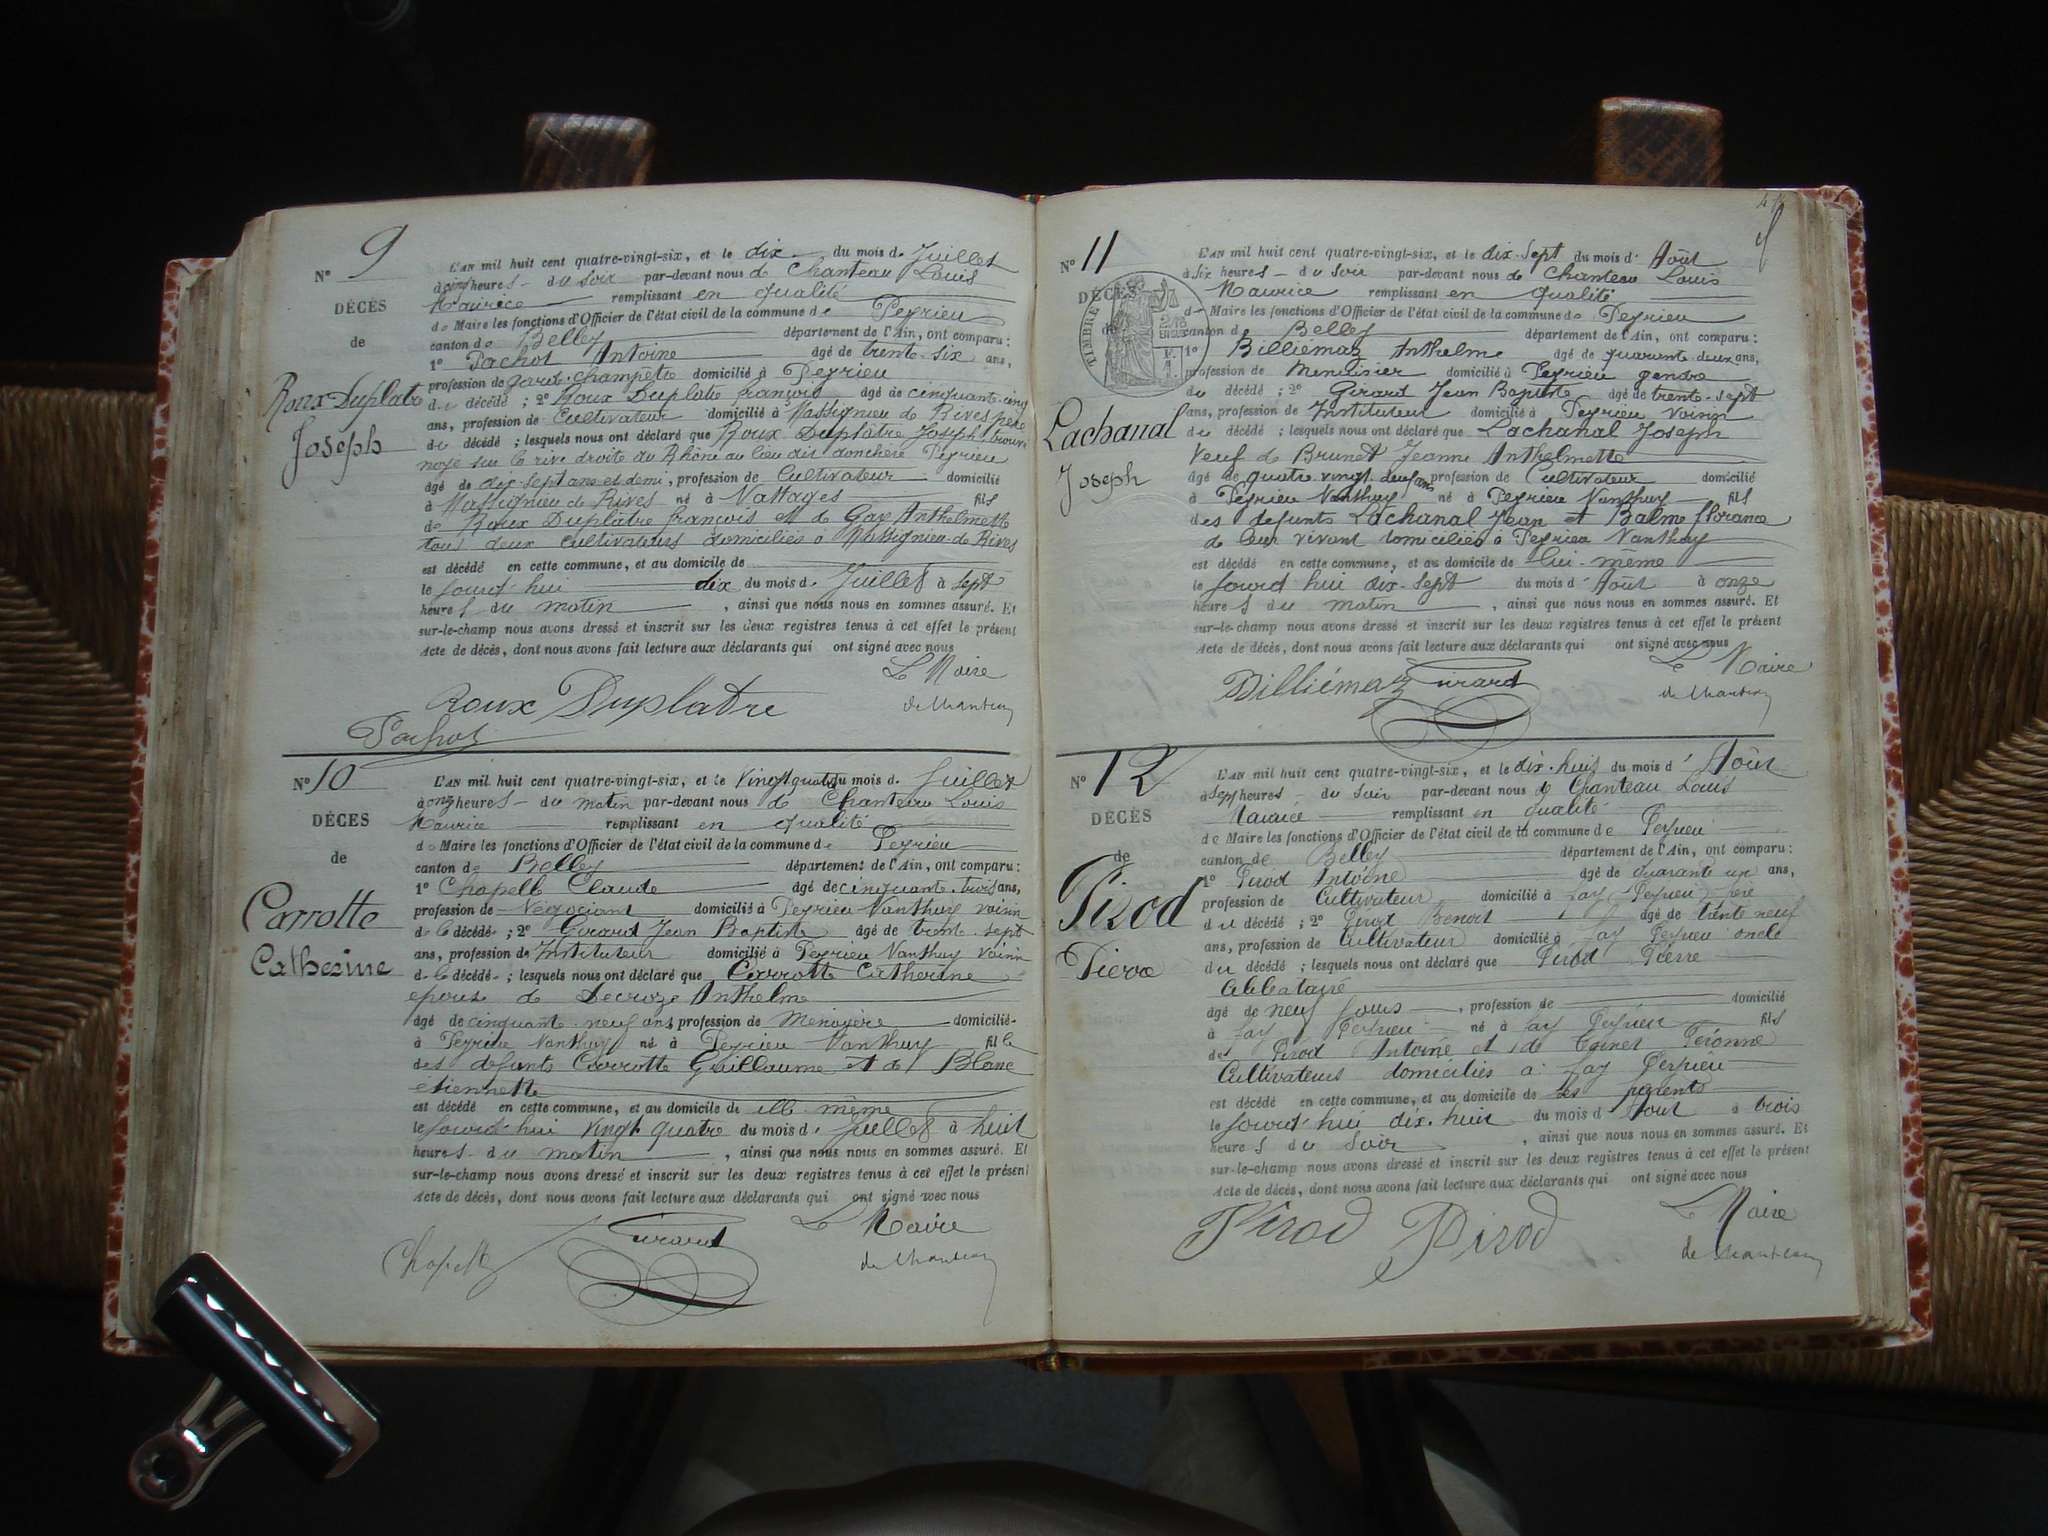 N° 9
DÉCÈS
de
Roux Duplatre
Joseph
L'AN mil huit cent quatre-vingt-six, et le dix du mois de Juillet
à cinq heures du soir par-devant nous de Chanteau Louis
Maurice remplissant en qualité
de Maire les fonctions d'Officier de l'état civil de la commune de Peyrieu
canton de Belley département de l'Ain, ont comparu :
1° Pachot Antoine âgé de trente-six ans,
profession de garde-champêtre domicilié à Peyrieu
du décédé ; 2° Roux Duplatre françois âgé de cinquante-cinq
ans, profession de Cultivateur domicilié à Massignieu de Rives père
du décédé ; lesquels nous ont déclaré que Roux Duplâtre Joseph trouvé
noyé sur la rive droite du Rhône au lieu dit Peyrieu
âgé de dix-sept ans et demi, profession de Cultivateur domicilié
à Massignieu de Rives né à Nattages fils
de Roux Duplâtre françois et de Gay Anthelmette
tous deux cultivateurs domiciliés à Massignieu-de-Rives
est décédé en cette commune, et au domicile de
le Jourd'hui dix du mois de Juillet à sept
heures du matin, ainsi que nous nous en sommes assuré. Et
sur-le-champ nous avons dressé et inscrit sur les deux registres tenus à cet effet le présent
Acte de décès, dont nous avons fait lecture aux déclarants qui ont signé avec nous
Le Maire
Roux Duplatre de Chanteau
Pachot
N° 10
DÉCES
de
Carrotte
Catherine
L'AN mil huit cent quatre-vingt-six, et le vingt quatre du mois de Juillet
à onze heures du matin par-devant nous de Chanteau Louis
Maurice remplissant en qualité
de Maire les fonctions d'Officier de l'état civil de la commune de Peyrieu
canton de Belley département de l'Ain, ont comparu :
1° Chapelle Claude âgé de cinquante-trois ans,
profession de Négociant domicilié à Peyrieu Nanthuy voisin
de la décédé ; 2° Girard Jean Baptiste âgé de trente-sept
ans, profession de Instituteur domicilié à Peyrieu Nanthuy voisin
de la décédé ; lesquels nous ont déclaré que Carrotte Catherine
épouse de Decroze Anthelme
âgé de cinquante-neuf ans, profession de Ménagère domicilié
à Peyrieu Nanthuy né à Peyrieu Nanthuy fille
des défunts Carrotte Guillaume et de Blanc
étiennette
est décédé en cette commune, et au domicile de elle même
le Jourd'hui vingt quatre du mois de Juillet à huit
heures du matin, ainsi que nous nous en sommes assuré. Et
sur-le-champ nous avons dressé et inscrit sur les deux registres tenus à cet effet le présent
Acte de décès, dont nous avons fait lecture aux déclarants qui ont signé avec nous
Le Maire
Chapelle Girard de Chanteau
N° 11
DÉCÈS
de
TIMBRE
Lachanal
Joseph
L'AN mil huit cent quatre-vingt-six, et le dix-sept du mois d'Août
à six heures du soir par-devant nous de Chanteau Louis
Maurice remplissant en qualité
de Maire les fonctions d'Officier de l'état civil de la commune de Peyrieu
canton de Belley département de l'Ain, ont comparu :
1° Billiémaz Anthelme âgé de quarante deux ans,
profession de Menuisier domicilié à Peyrieu gendre
du décédé ; 2° Girard Jean Baptiste âgé de trente-sept
ans, profession de Instituteur domicilié à Peyrieu voisin
du décédé ; lesquels nous ont déclaré que Lachanal Joseph
veuf de Brunet Jeanne Anthelmette
âgé de quatre vingt deux ans profession de Cultivateur domicilié
à Peyrieu Nanthuy né à Peyrieu Nanthuy fils
des défunts Lachanal Jean et Balme florance
de leur vivant domiciliés à Peyrieu Nanthuy
est décédé en cette commune, et au domicile de lui-même
le Jourd'hui dix-sept du mois d'Août à onze
heures du matin, ainsi que nous nous en sommes assuré. Et
sur-le-champ nous avons dressé et inscrit sur les deux registres tenus à cet effet le présent
Acte de décès, dont nous avons fait lecture aux déclarants qui ont signé avec nous
Le Maire
Billiémaz Girard de Chanteau
N° 12
DÉCÈS
de
Pirod
Pierre
L'AN mil huit cent quatre-vingt-six, et le dix-huit du mois d'Août
à sept heures du soir par-devant nous de Chanteau Louis
Maurice remplissant en qualité
de Maire les fonctions d'Officier de l'état civil de la commune de Peyrieu
canton de Belley département de l'Ain, ont comparu :
1° Pirod Antoine âgé de quarante un ans,
profession de Cultivateur domicilié à fay Peyrieu père
du décédé ; 2° Pirod Benoit âgé de trente neuf
ans, profession de Cultivateur domicilié à fay Peyrieu oncle
du décédé ; lesquels nous ont déclaré que Pirod Pierre
Célibataire
âgé de neuf jours, profession de domicilié
à fay Peyrieu né à fay Peyrieu fils
des Pirod Antoine et de Péronne
Cultivateurs domiciliés à fay Peyrieu
est décédé en cette commune, et au domicile de ses parents
le Jourd'hui dix-huit du mois d'Août à trois
heures du soir, ainsi que nous nous en sommes assuré. Et
sur-le-champ nous avons dressé et inscrit sur les deux registres tenus à cet effet le présent
Acte de décès, dont nous avons fait lecture aux déclarants qui ont signé avec nous
Le Maire
Pirod Pirod de Chanteau